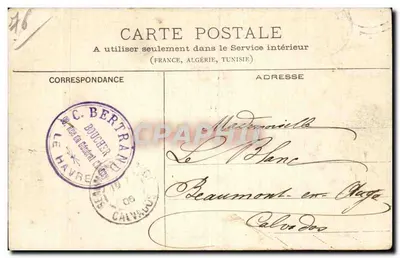 46
CARTE POSTALE
A utiliser seulement dans le Service intérieur
(FRANCE, ALGÉRIE, TUNISIE)
CORRESPONDANCE
ADRESSE
C. BERTRAND
BOUCHER
LE HAVRE
06
CALVADOS
Mademoiselle
Le Blanc
Beaumont-en-Auge
Calvados